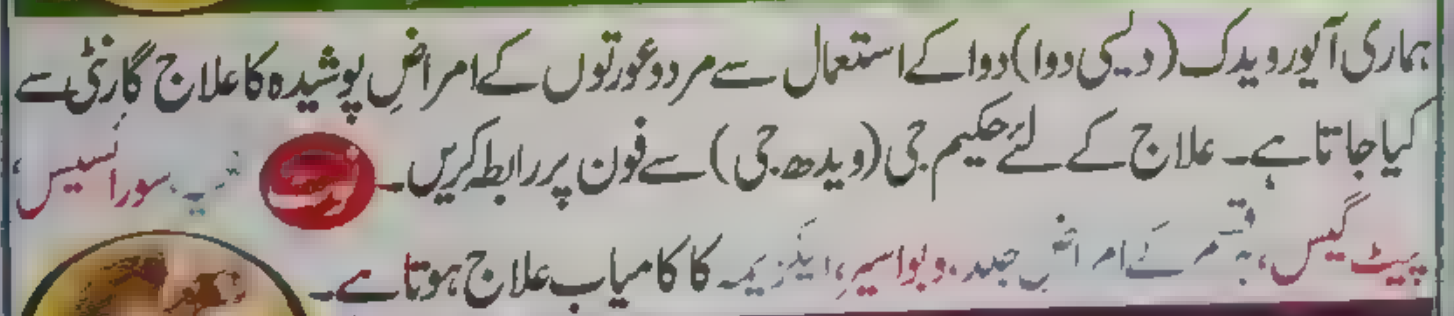 ہماری آیورویدک (دیسی دوا) دوا کے استعمال سے مرد و عورتوں کے امراضِ پوشیدہ کا علاج گارنٹی سے
کیا جاتا ہے۔ علاج کے لئے حکیم جی (ویدھ جی) سے فون پر رابطہ کریں۔ نوٹ سورائسیس،
پیٹ گیس، ہر قسم کے امراضِ جلد، و بواسیر، ایگزیمہ کا کامیاب علاج ہوتا ہے۔